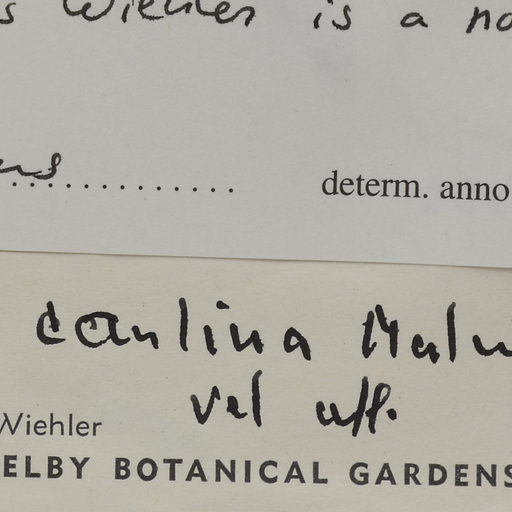 s Wiehler is a no
ns .............. determ. anno
caulina Malm
vel aff.
Wiehler
ELBY BOTANICAL GARDENS